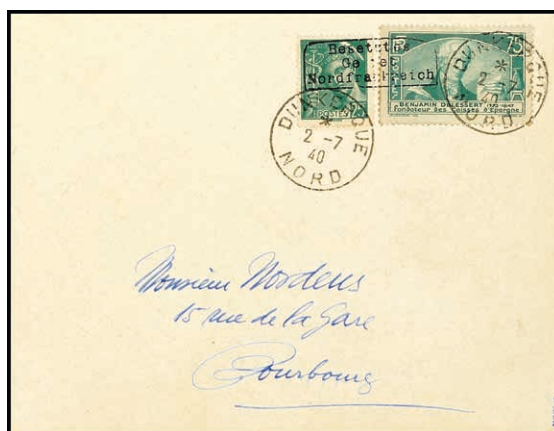 Besetztes
Gebiet
Nordfrankreich
POSTES
75
BENJAMIN DELESSERT 1773-1847
Fondateur des Caisses d'Epargne
DUNKERQUE
*
2 -7
40
NORD
DUNKERQUE
*
2 -7
40
NORD
Monsieur Nordens
15 rue de la Gare
Bourbourg